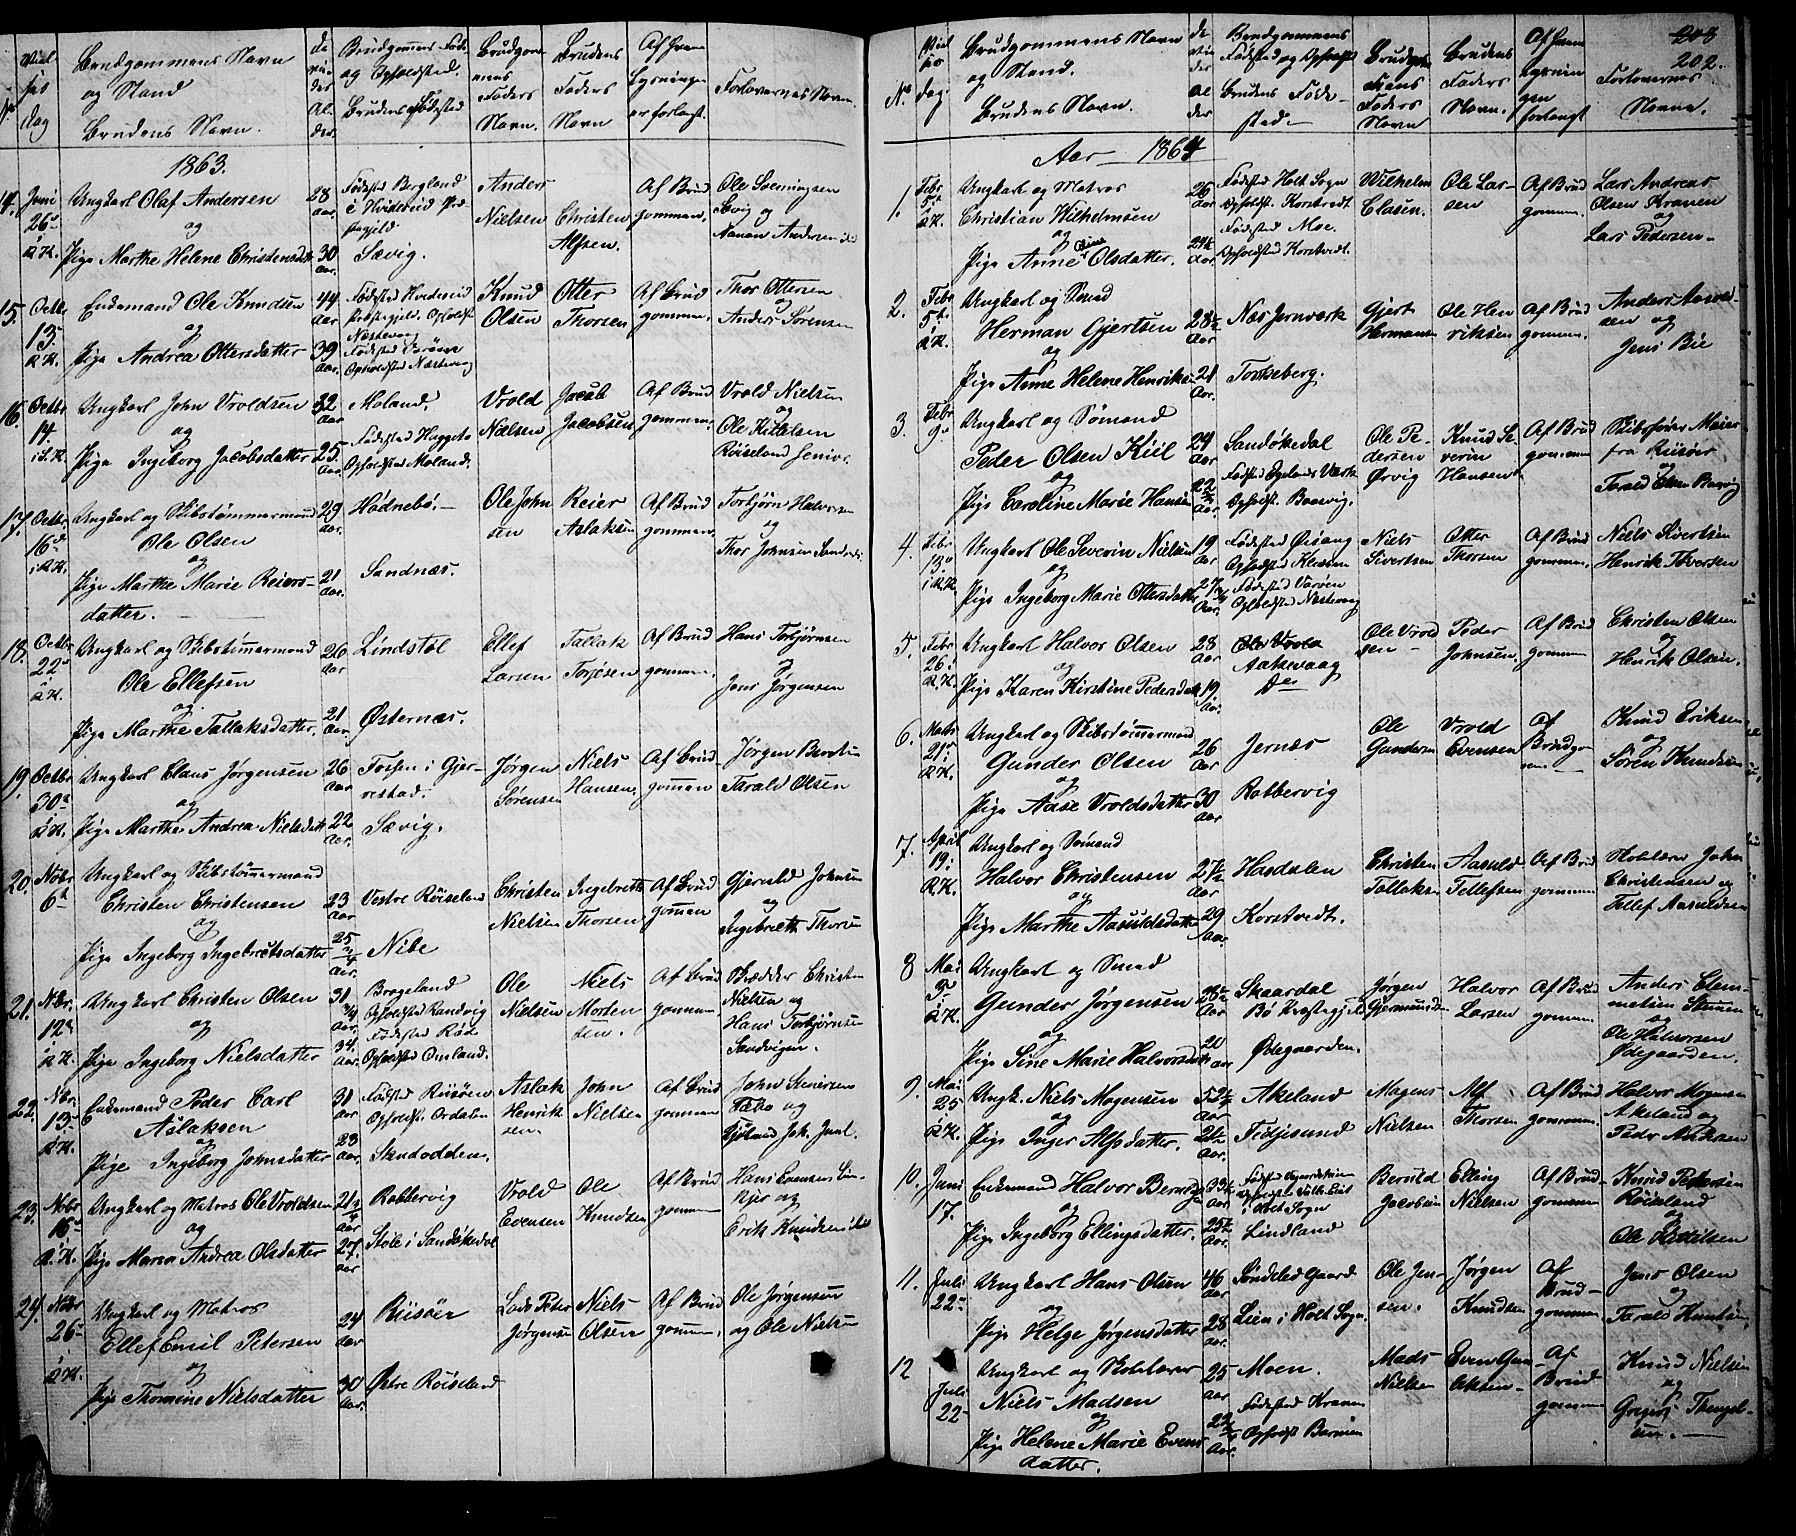 Brudgommens Navn
og Stand
Brudens Navn.
Brudgommens Føde-
og Opholdsted.
Brudens Fødested
Brudgom-
mens
Faders
Navn.
Brudens
Faders
Navn
Af hvem
Lysningen
er forlagt.
Forlovernes Navne.
1863.
14. Juni 26de i R.K.
Ungkarl Olaf Andersen
og
Pige Marthe Helene Christensdatter
28 Aar
30 Aar.
Fødested Bergland
i Hvideseid Præ-
stegjeld
Søvig.
Anders
Nielsen
Christen
Alfsen.
Af Brud
gommen.
Ole Soeningsen
Søvig og
Nanon Andersen
15. Octbr 13 R.K.
Enkemand Ole Knudsen
og
Pige Andrea Ottersdatter
44 Aar
39 Aar.
Fødested Hvideseid
Præstegjeld. Opholdst
Næstevaag
Fødested Varøen
Opholdsted Næstevaag
Knud
Olsen
Otter
Thorsen
Af Brud
gommen.
Thor Ottersen
og
Anders Sørensen
16. Octbr 14. i S.K.
Ungkarl John Vroldsen
og
Pige Ingeborg Jacobsdatter
32 Aar
25 Aar.
Moland.
Fødested Haggeto
Opholdsted Moland.
Vrold
Nielsen
Jacob
Jacobsen
Af Brud
gommen.
Vrold Nielsen
og
Ole Kittelsen
Røiseland Senior.
17. Octbr 16de i R.K.
Ungkarl og Skibstømmermand
Ole Olsen
og
Pige Marthe Marie Reiers-
datter.
29 Aar.
21 Aar.
Hødnebø.
Sandnæs.
Ole John
sen
Reier
Aslaksen
Af Brud
gommen.
Torbjørn Halvorsen
og
Thor Johnsen Sandnæs
18. Octbr 22de i R.K.
Ungkarl og Skibstømmermand
Ole Ellefsen
og
Pige Marthe Tallaksdatter.
26 Aar
21 Aar
Lindstøl
Østernæs.
Ellef
Larsen
Tallak
Torjesen
Af Brud
gommen.
Hans Torbjørnsen
og
Jens Jørgensen
19. Octbr 30te R.K.
Ungkarl Claus Jørgensen
og
Pige Marthe Andrea Nielsdatter
26 Aar
22 Aar.
Torsen i Gjer-
restad.
Søvig.
Jørgen
Sørensen
Niels
Hansen.
Af Brud-
gommen
Jørgen
Tarald Olsen
20. Nobr 6te
Ungkarl og Skibstømmermand
Christen Christensen
og
Pige Ingeborg Ingebretsdatter
23 Aar
25 3/4 Aar.
Vestre Røiseland
Nibe
Christen
Nielsen
Ingebreth
Thorsen
Af Brud
gommen
Gjeruld Johnsen
og
Ingebreth Thorsen
21. Nbr. 12te i R.K.
Ungkarl Christen Olsen
og
Pige Ingeborg Nielsdatter
31 3/4 Aar.
34 Aar.
Brogeland
Opholdsted Randvig
Fødested Røe
Opholdsted Omland.
Ole
Nielsen
Niels
Morten
sen.
Af Brud
gommen
Skrædder Christen
Nielsen og
Hans Torbjørnsen
Sandvigen.
22. Nbr. 13de R.K.
Enkemand Peder Carl
Aslaksen
og
Pige Ingeborg Johnsdatter
31 Aar
23 Aar.
Fødested Riisøer
Opholdst. Ordalen
Skudodden.
Aslak
Henrik
sen
John
Nielsen
Af Brud
gommen
John Stenersen
Fæbo og
23. Nobr 16de R.K.
Ungkarl og Matros Ole Vroldsen
og
Pige Maren Andrea Olsdatter
21 3/4 Aar
27 Aar
Robbervig
Støle i Sandøkedal
Vrold
Evensen
Ole
Knudsen
Af Brud
gommen
Hans Evensen
og
Erik Knudsen
24. Nobr 26de i R.K.
Ungkarl og Matros
Ellef Emil Petersen
og
Pige Thomine Nielsdatter
24 Aar
30 Aar.
Riisøer
Østre Røiseland
Lods Peter
Jørgensen
Niels
Olsen
Af Brud
gommen.
Ole Jørgensen
og Ole Nielsen
208
202.
No
Brudgommens Navn
og Stand.
Brudens Navn.
Brudgommens
Fødested og Opholdst
Brudens Føde-
sted.
Brudgom-
mens
Faders
Navn
Brudens
Faders
Navn.
Af hvem
Lysnin
gen
forlangt
Forlovernes
Navne.
Aar 1864
1. Febr 5te i R.K.
Ungkarl og Matros
Christian Wilhelmsen
og
Pige Anne Sine Olsdatter.
26 Aar
Fødested Holt Sogn
Opholdst. Korstvedt.
Fødested Moe.
Opholdsted Korstvedt.
Wilhelm
Clasen.
Ole Lar-
sen
Af Brud
gommen.
Lars Andreas
Olsen Kranen
og
Lars Pedersen
2. Febr 5te i R.K.
Ungkarl og Smed
Herman Gjertsen
og
Pige Anne Helene Henriks
28½ Aar
21 Aar.
Næs Jernværk
Torkeberg.
Gjert
Hermansen
Ole Hen
riksen
Af Brud
gommen.
Anders
sen og
Jens Bie
3. Febr 9de
Ungkarl og Sømand
Peder Olsen Kiil
og
Pige Caroline Marie Hansen
24 Aar
22 3/4 Aar.
Sandøkedal
Fødested Egelands Værk
Opholdst. Baasvig.
Ole Pe-
dersen
Ørvig
Knud Se-
verin
Hansen
Af Brud
gommen
Skibsfører Maier
fra Riisøer
og
Tarald Olsen
4. Febr 13de i R.K.
Ungkarl Ole Severin Nielsen
og
Pige Ingeborg Marie Ottersdatter
19 Aar
27 3/4 Aar.
Fødested Øisang
Opholdsted Klausen
Fødested Varøen
Opholdsted Næstevaag
Niels
Sivertsen
Otter
Thorsen
Af Brud
gommen.
Niels Sivertsen
Henrik Thorsen
5. Febr 26de R.K.
Ungkarl Halvor Olsen
og
Pige Karen Kirstine Pedersdatter
28 Aar
19. Aar.
Ole Vrold
Aakevaag
Do
Ole Vrold
sen
Peder
Johnsen.
Af Brud
gommen
Christen Olsen
og
Henrik Olsen.
6. Marts 21de R.K.
Ungkarl og Skibstømmermand
Gunder Olsen
og
Pige Aase Vroldsdatter
26 Aar
30 Aar
Jernæs
Robbervig
Ole
Gundersen
Vrold
Evensen
Af
Brudgom
men
Knud Eriksen
og
Søren Knudsen
7. April 19. R.K.
Ungkarl og Sømand
Halvor Christensen
og
Pige Marthe Aasuldsdatter
27½ Aar
29 Aar.
Hasdalen
Korstvedt.
Christen
Tallaksen
Aasuld
Tellefsen
Af Brud
gommen
Skolelærer John
Christensen og
Tellef Aasuldsen
8 Mai i R.K.
Ungkarl og Smed
Gunder Jørgensen
og
Pige Sine Marie Halvorsdatter
28½ Aar
20 Aar
Skaardal
Bø Præstegjeld
Ødegaarden.
Jørgen
Gjermundsen
Halvor
Larsen
Af Brud
gommen.
Anders Clem-
metsen Stamen
og
Ole Halvorsen
Ødegaarden.
9. Mai 25 R.K.
Ungk. Niels Mogensen
og
Pige Inger Alfsdatter.
52½ Aar
Akeland
Tedjesund
Mogens
Nielsen
Alf
Thorsen
Af Brud
gommen
Halvor Mogensen
Akeland og
Peder
10. Juni 17.
Enkemand Halvor Berntsen
og
Pige Ingeborg Ellingsdatter.
33½ Aar
25½ Aar.
i Holt Sogn
Lindland
Berntd
Jacobsen
Elling
Nielsen
Af Brud-
gommen
Knud Pedersen
Røiseland
og
Ole Kittilsen
11. Juli 22de
Ungkarl Hans Olsen
og
Pige Helge Jørgensdatter
46 Aar
28 Aar.
Søndeled Gaard
Lien i Holt Sogn.
Ole Jen-
sen.
Jørgen
Knudsen
Af
Brud-
gommen
Jens Olsen
og
Tarald Knudsen
12 Juli 22
Ungkarl og Skolelærer
Niels Madsen
og
Pige Helene Marie Evens
datter.
25 Aar
22 3/4 Aar.
Moen.
Fødested Kranen
Opholdst Barmen
Mads
Nielsen
Even Gun-
Af
Brud
gommen
Knud Nielsen
og
Gregers